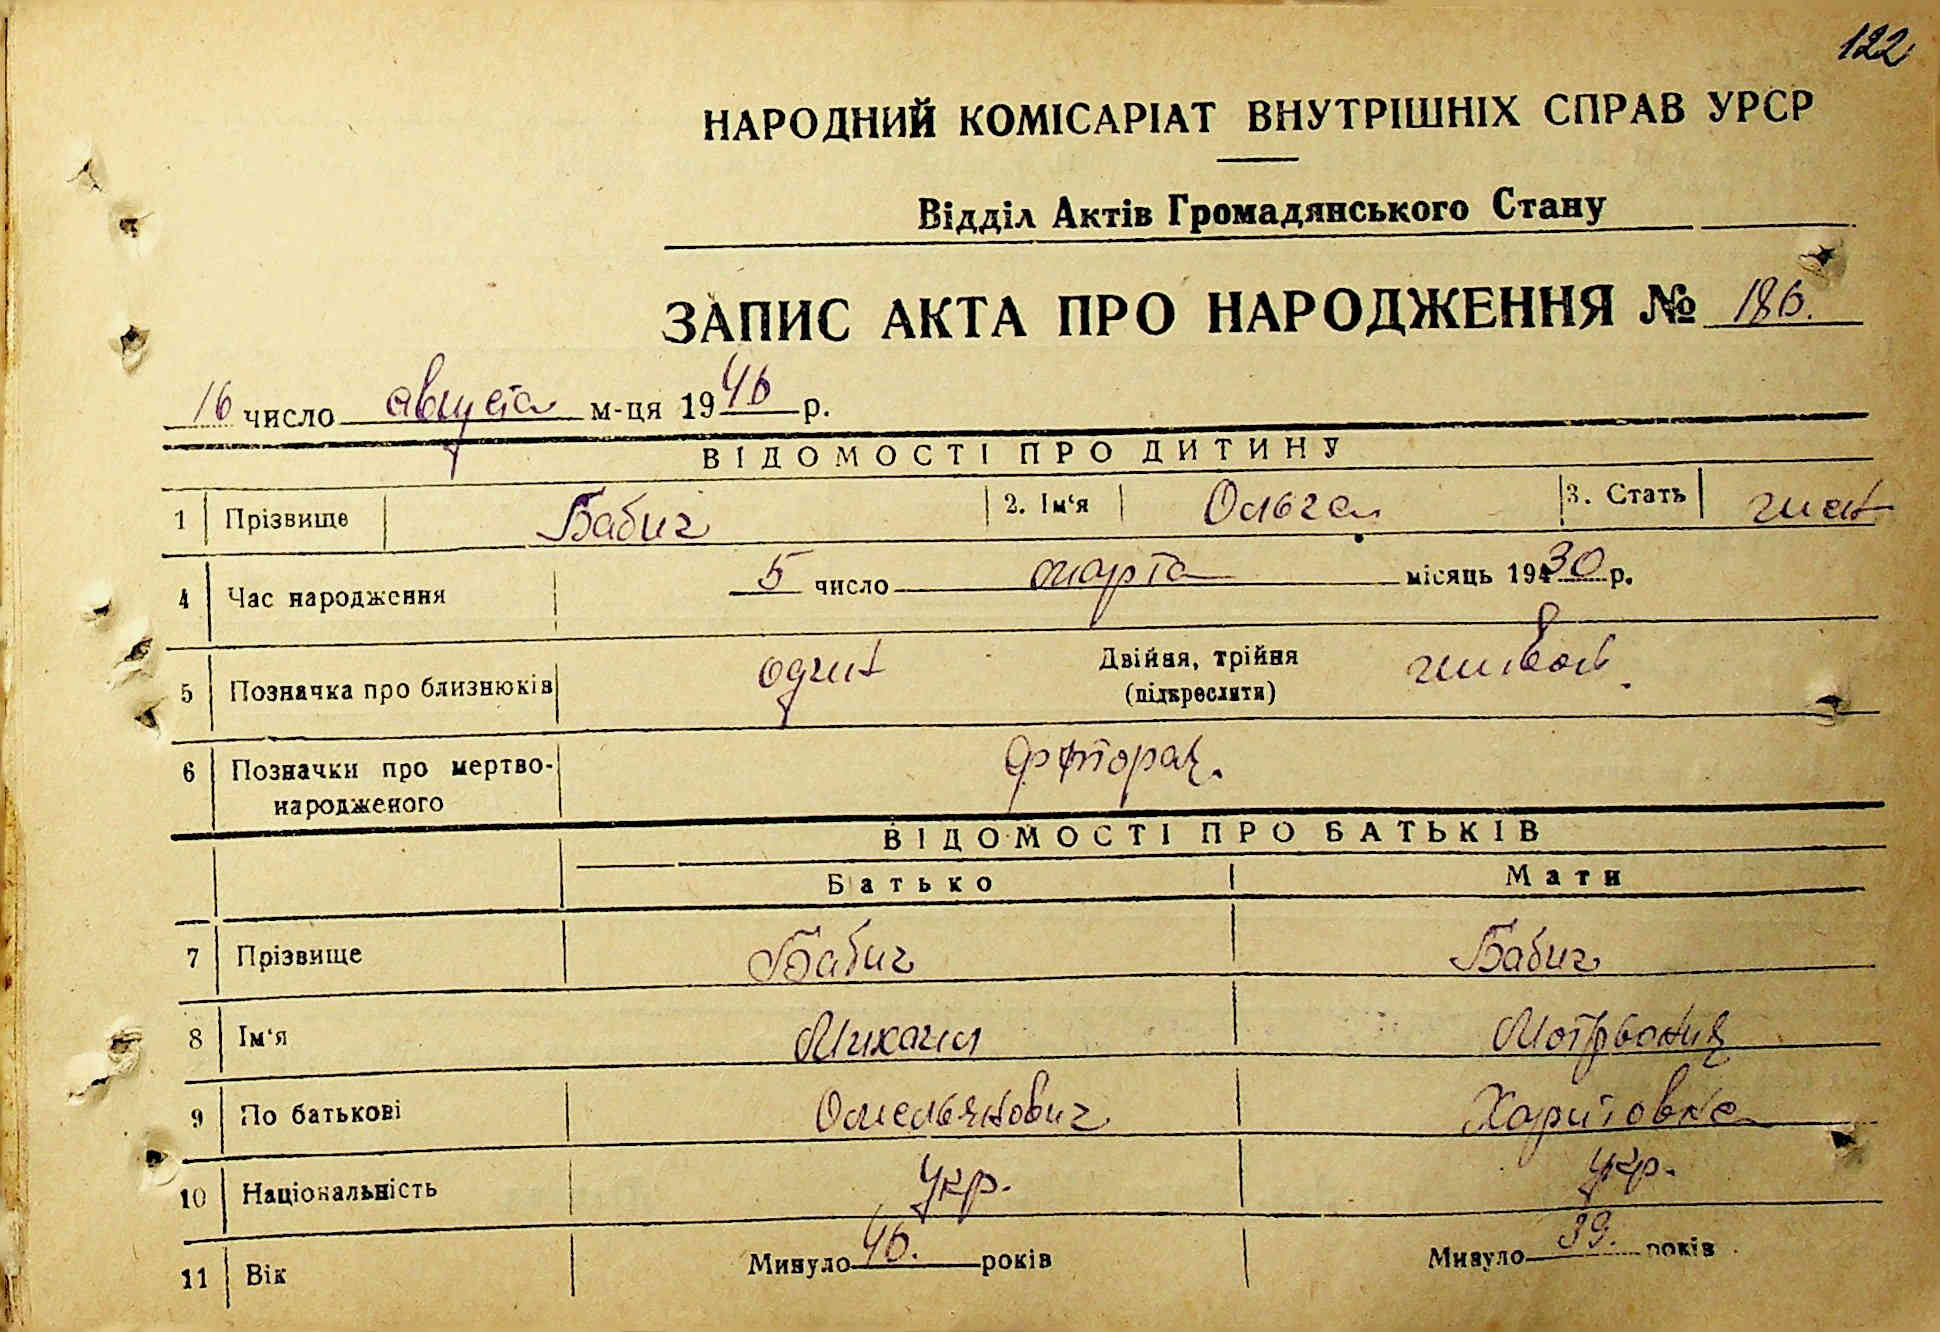 122
НАРОДНИЙ КОМІСАРІАТ ВНУТРІШНІХ СПРАВ УРСР
Відділ Актів Громадянського Стану
ЗАПИС АКТА ПРО НАРОДЖЕННЯ № 186.
16 число августа м-ця 1946 р.
ВІДОМОСТІ ПРО ДИТИНУ
1 Прізвище Бабич 2. Ім'я Ольга 3. Стать жен
4 Час народження 5 число марта місяць 1930 р.
5 Позначка про близнюків один Двійня, трійня (підкреслити) живой
6 Позначки про мертвонародженого
ВІДОМОСТІ ПРО БАТЬКІВ
Батько Мати
7 Прізвище Бабич Бабич
8 Ім'я Михаил Мотрвония
9 По батькові Омельянович Харитовна
10 Національність укр. укр.
11 Вік Минуло 46. років Минуло 39. років